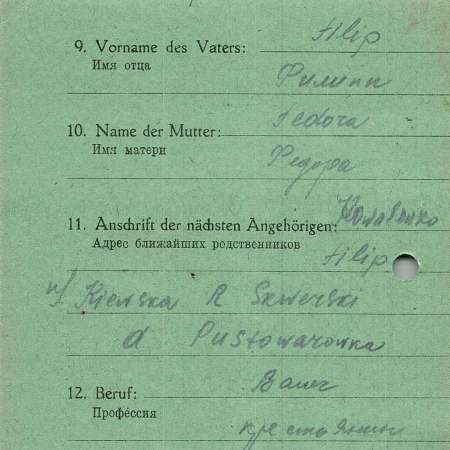 Filip
9. Vorname des Vaters:
Имя отца
Филипп
Fedora
10. Name der Mutter:
Имя матери
Федора
11. Anschrift der nächsten Angehörigen: Kowalenko
Адрес ближайших родственников
Filip
Kiewska R Skwerski
d Pustowarowka
Bauer
12. Beruf:
Профе́ссия
крестьянин